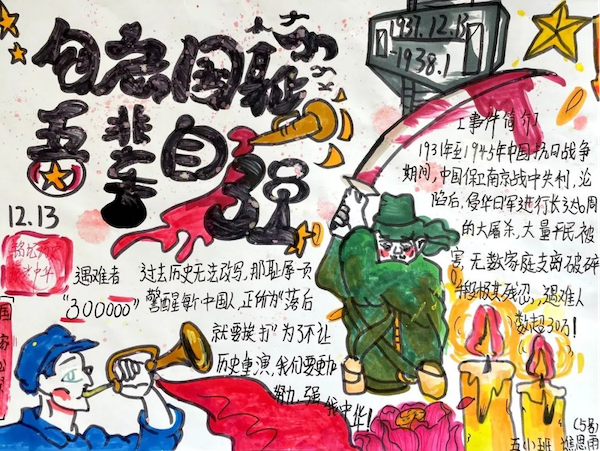 勿忘国耻
吾辈自强
1937.12.13
-1938.1
12.13
遇难者
"300000"
过去历史无法改写,那耻辱一页
警醒每个中国人,正所谓"落后
就要挨打"为了不让
历史重演,我们要勤
努力,强
我中华!
【事件简介】
1931年至1945年中国抗日战争
期间,中国保卫南京战中失利,沦
陷后,侵华日军进行长达6周
的大屠杀,大量平民被
害,无数家庭支离破碎
极其残忍,遇难人
数超30万!
国家公
(5号)
五小班